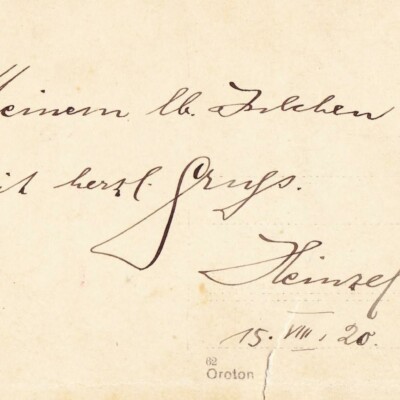 Meinem lb. Julchen
mit herzl. Gruß.
Heinzel
15. VIII. 20.
62
Oroton